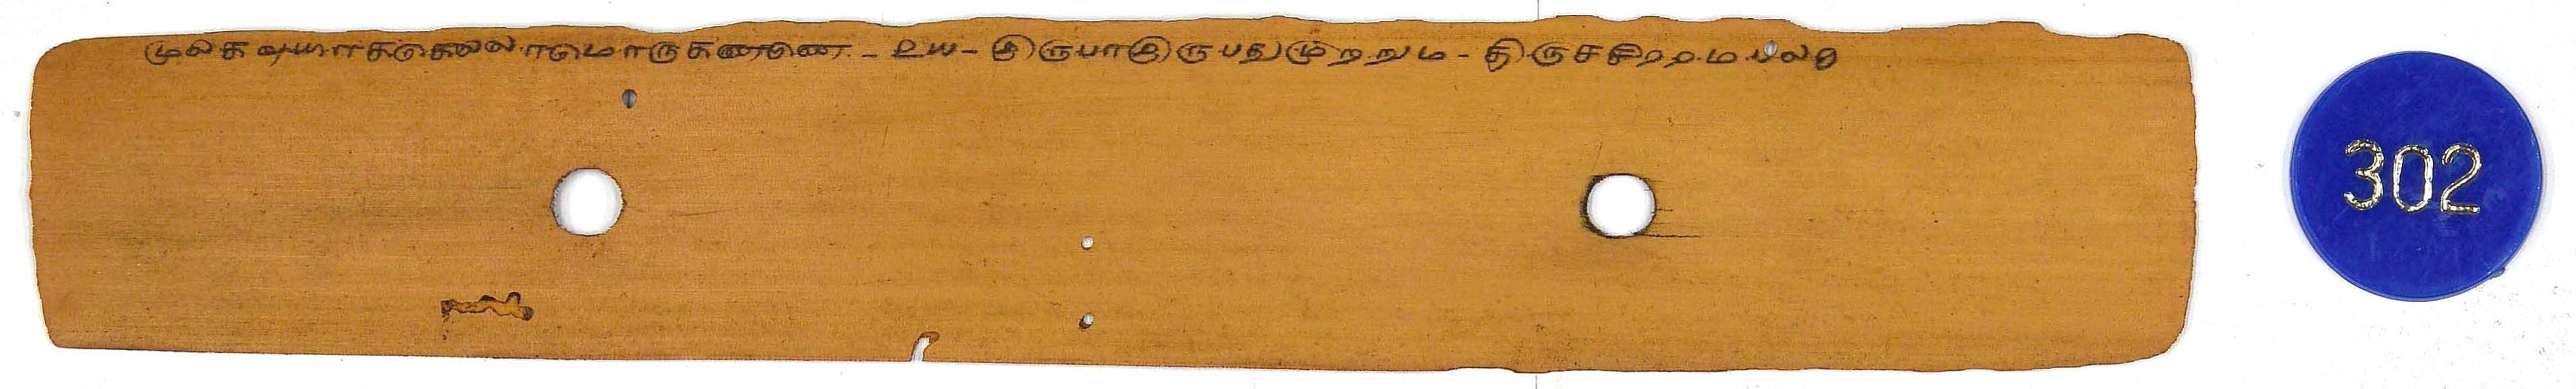 முலகவுயிர்க்கெல்லாமொருகண்ணெ - உய - இருபாஇருபதுமுற்றும் - திருச்சிற்றம்பலம்
302